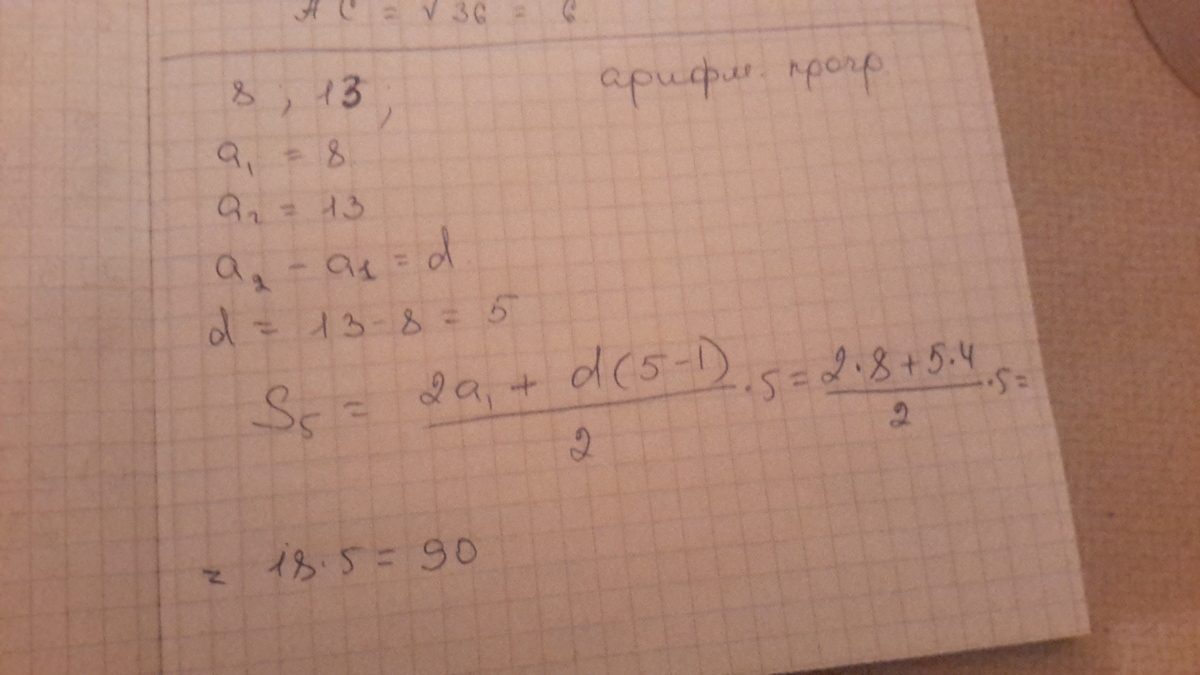 AC = √36 = 6
8 ; 13 ; арифм. прогр
a₁ = 8
a₂ = 13
a₂ - a₁ = d
d = 13 - 8 = 5
S₅ = (2a₁ + d(5-1))/2 · 5 = (2·8+5·4)/2 · 5 =
= 18·5 = 90